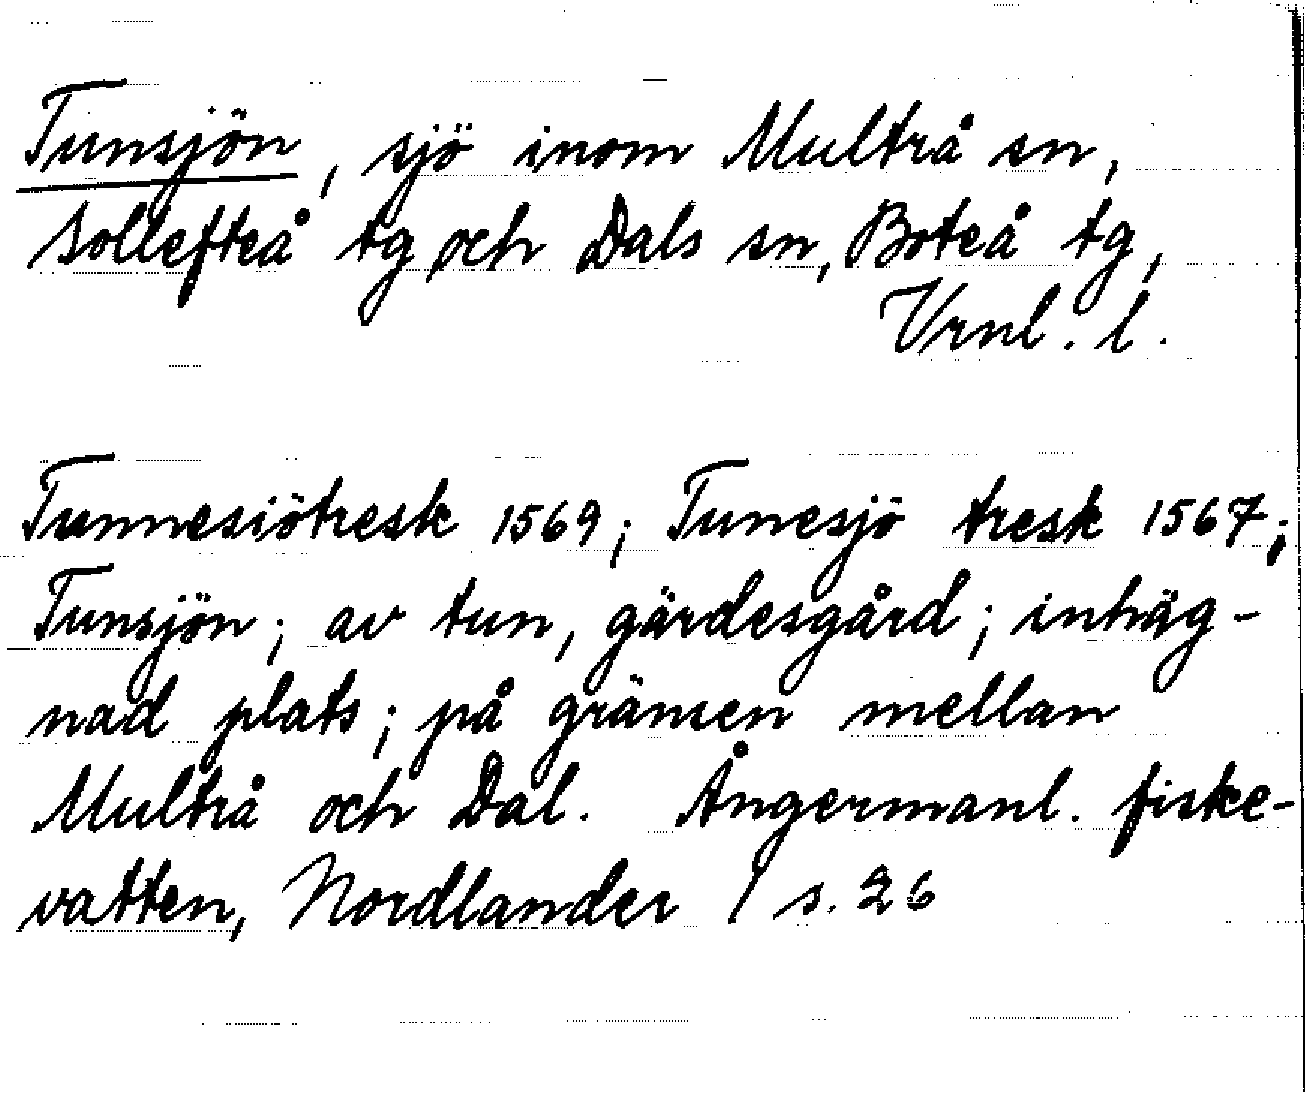 Tunsjön, sjö inom Multrå sn,
Sollefteå tg och Dals sn, Boteå tg,
Vrnl. l.
Tunnesiötresk 1569; Tunesjö tresk 1567;
Tunsjön; av tun, gärdesgård; inhäg-
nad plats; på gränsen mellan
Multrå och Dal. Ångermanl. fiske-
vatten, Nordlander / s. 26